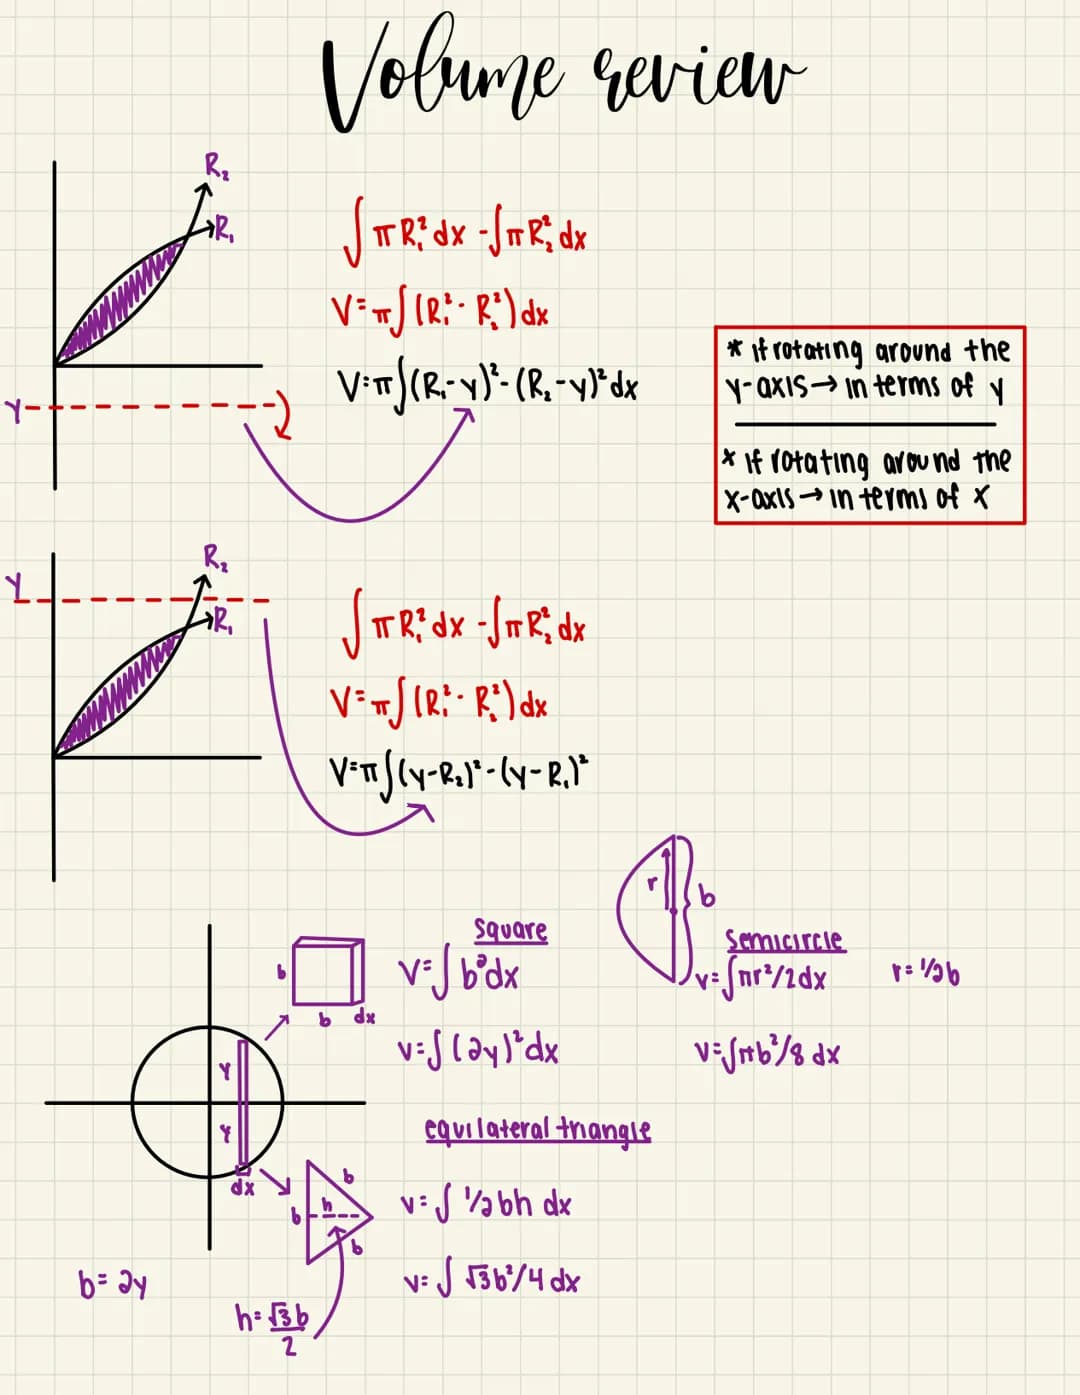 Volume review
R₂
R₁
∫πR₁²dx - ∫πR₂²dx
V=π∫(R₁² - R₂²)dx
V=π∫(R₁-y)²-(R₂-y)²dx
y
* if rotating around the
y-axis→ in terms of y
* if rotating around the
x-axis→ in terms of x
R₂
y
R₁
∫πR₁²dx - ∫πR₂²dx
V=π∫(R₁² - R₂²)dx
V=π∫(y-R₂)²-(y-R₁)²
r
b
Square
b
V=∫b²dx
b dx
V=∫(2y)²dx
Semicircle
V=∫πr²/2dx
r=1/2b
V=∫πb²/8 dx
y
y
dx
equilateral triangle
b
h
b
b
V=∫1/2bh dx
V=∫√3b²/4dx
b=2y
h=√3b
2